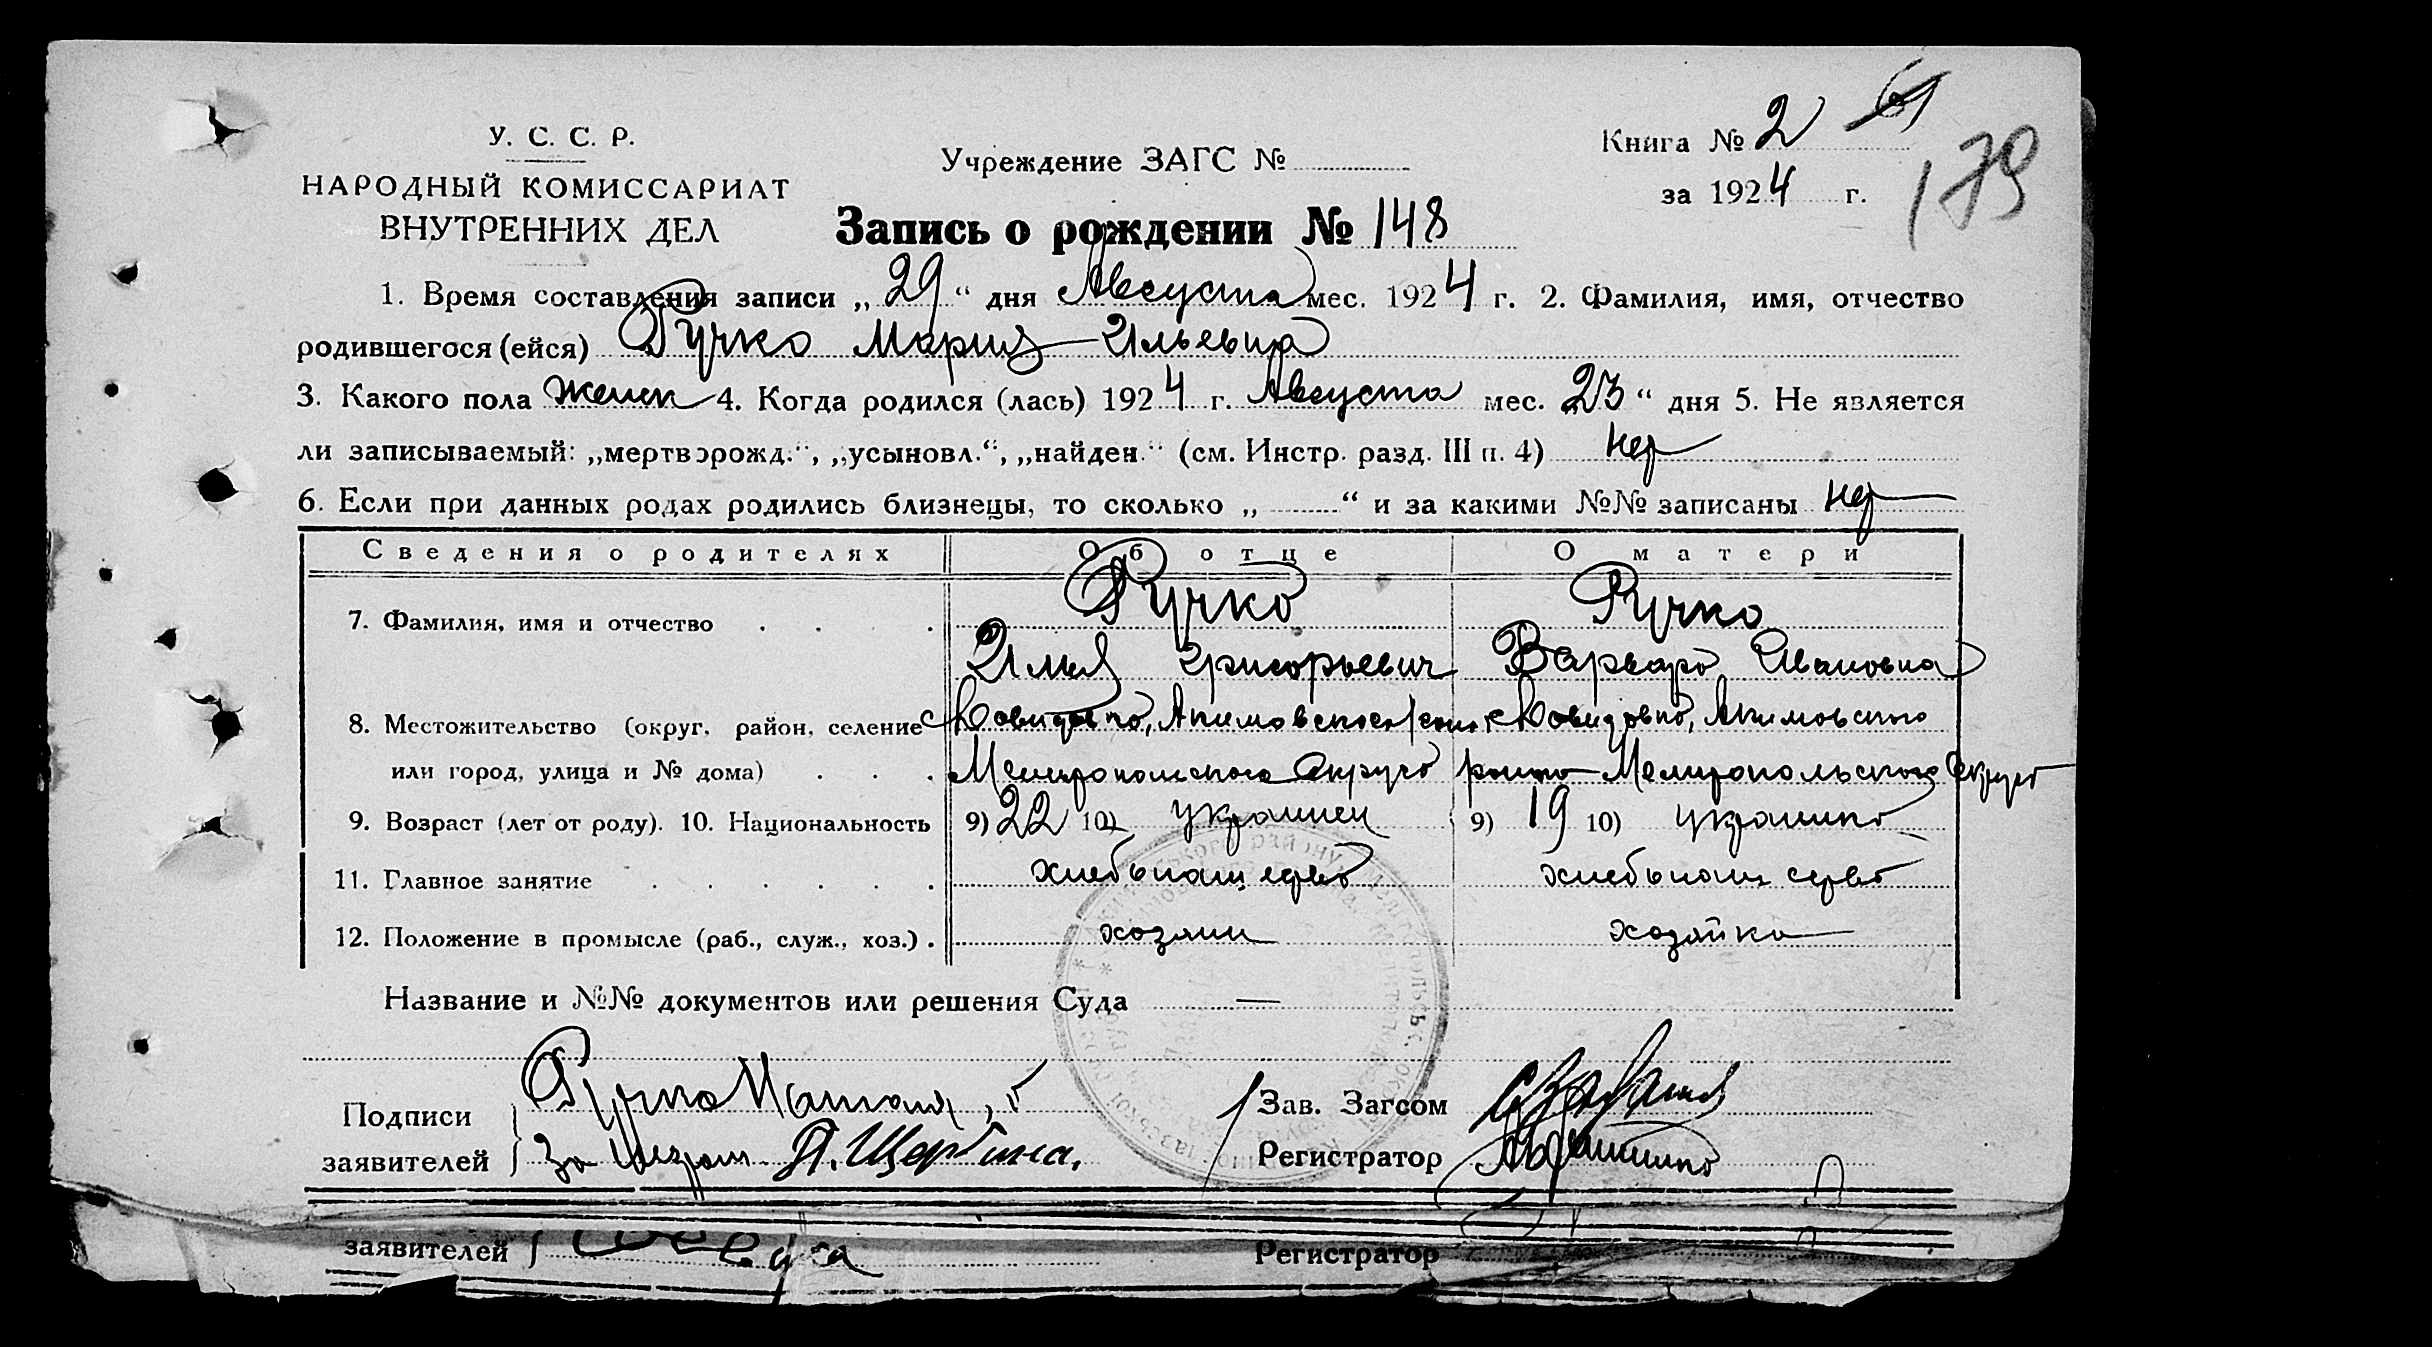 У. С. С. Р.
НАРОДНЫЙ КОМИССАРИАТ
ВНУТРЕННИХ ДЕЛ
Учреждение ЗАГС №
Книга № 2
за 1924 г.
179
Запись о рождении № 148
1. Время составления записи „ 29 “ дня Августа мес. 1924 г. 2. Фамилия, имя, отчество
родившегося (ейся) Ручко Мария Ильевна
3. Какого пола женск 4. Когда родился (лась) 1924 г. Августа мес. 23 “ дня 5. Не является
ли записываемый: „мертворожд.“, „усыновл.“, „найден.“ (см. Инстр. разд. III п. 4) нет
6. Если при данных родах родились близнецы, то сколько „ “ и за какими №№ записаны нет
Сведения о родителях Об отце О матери
Ручко Ручко
7. Фамилия, имя и отчество
Илья Григорьевич Варвара Ивановна
8. Местожительство (округ, район, селение Акимовского Акимовского
или город, улица и № дома) Мелитопольского Округа района Мелитопольского Округа
9. Возраст (лет от роду). 10. Национальность 9) 22 10) украинец 9) 19 10) украинка
11. Главное занятие хлебопашество хлебопашество
12. Положение в промысле (раб., служ., хоз.) хозяин хозяйка
Название и №№ документов или решения Суда —
Подписи
заявителей
Ручко
За П. Щербина.
Зав. Загсом
Регистратор
заявителей
Регистратор